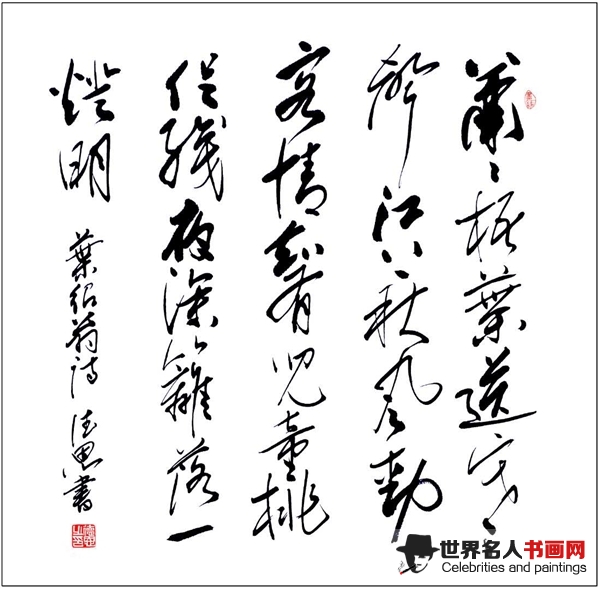 蕭〻梧葉送寒
聲江上秋風動
客情知有兒童挑
促織夜深籬落一
燈明
葉紹翁詩 書
世界名人书画网
Celebrities and paintings